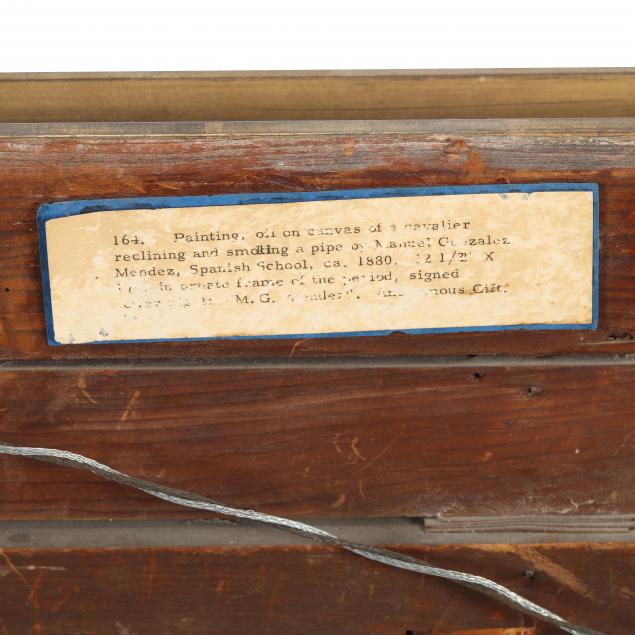 164. Painting, oil on canvas of a cavalier
reclining and smoking a pipe by Manuel Gonzalez
Mendez, Spanish School, ca. 1880. 12 1/2" X
in ornate frame of the period, signed
"M. G. Mendez". Anonymous Gift.